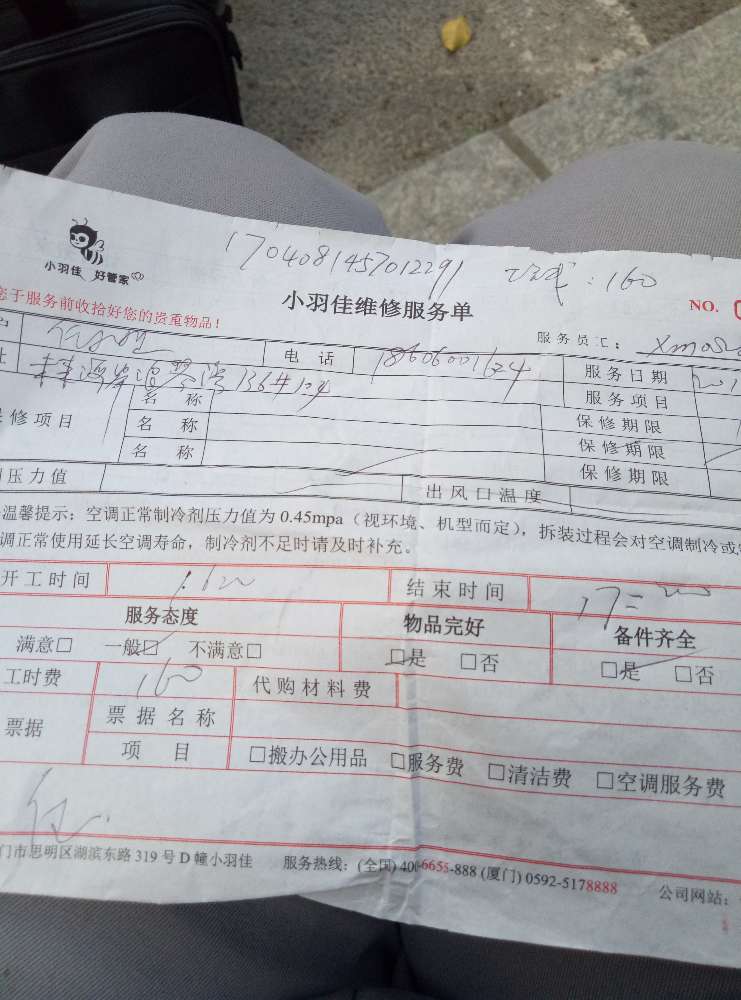 1704081457012291 :160
小羽佳 好管家
小羽佳维修服务单 NO.
您于服务前收拾好您的贵重物品！
服务员工：
电 话 18606001624 服务日期
136# 服务项目
保修项目 名 称 保修期限
名 称 保修期限
名 称 保修期限
压力值 出风口温度
温馨提示：空调正常制冷剂压力值为 0.45mpa（视环境、机型而定），拆装过程会对空调制冷或
调正常使用延长空调寿命，制冷剂不足时请及时补充。
开工时间 结束时间 17:00
服务态度 物品完好 备件齐全
满意□ 一般□ 不满意□ □是 □否 □是 □否
工时费 160 代购材料费
票据 票据名称
项 目 □搬办公用品 □服务费 □清洁费 □空调服务费
门市思明区湖滨东路 319 号 D 幢小羽佳 服务热线：(全国) 400-6655-888 (厦门) 0592-5178888 公司网站：